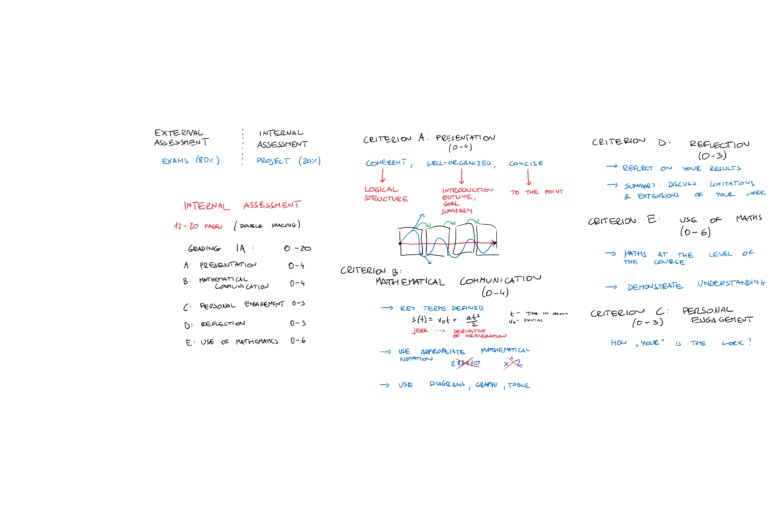 EXTERNAL ASSESSMENT
EXAMS (80%)
INTERNAL ASSESSMENT
PROJECT (20%)
INTERNAL ASSESSMENT
12-20 PAGES (DOUBLE SPACING)
GRADING IA: 0-20
A: PRESENTATION 0-4
B: MATHEMATICAL COMMUNICATION 0-4
C: PERSONAL ENGAGEMENT 0-3
D: REFLECTION 0-3
E: USE OF MATHEMATICS 0-6
CRITERION A: PRESENTATION
(0-4)
COHERENT, WELL-ORGANIZED, CONCISE
LOGICAL STRUCTURE
INTRODUCTION
OUTLINE,
GOAL
SUMMARY
TO THE POINT
CRITERION B:
MATHEMATICAL COMMUNICATION
(0-4)
→ KEY TERMS DEFINED
s(t) = v₀t + at²/2
t - TIME IN
v₀ - INITIAL
JERK → DERIVATIVE
OF ACCELERATION
→ USE APPROPRIATE MATHEMATICAL
NOTATION
x^2
→ USE DIAGRAMS, GRAPH, TABLE
CRITERION D: REFLECTION
(0-3)
→ REFLECT ON YOUR RESULTS
→ SUMMARY: DISCUSS LIMITATIONS
& EXTENSIONS OF YOUR WORK
CRITERION E: USE OF MATHS
(0-6)
→ MATHS AT THE LEVEL OF
THE COURSE
→ DEMONSTRATE UNDERSTANDING
CRITERION C: PERSONAL
(0-3) ENGAGEMENT
HOW „YOUR" IS THE WORK?